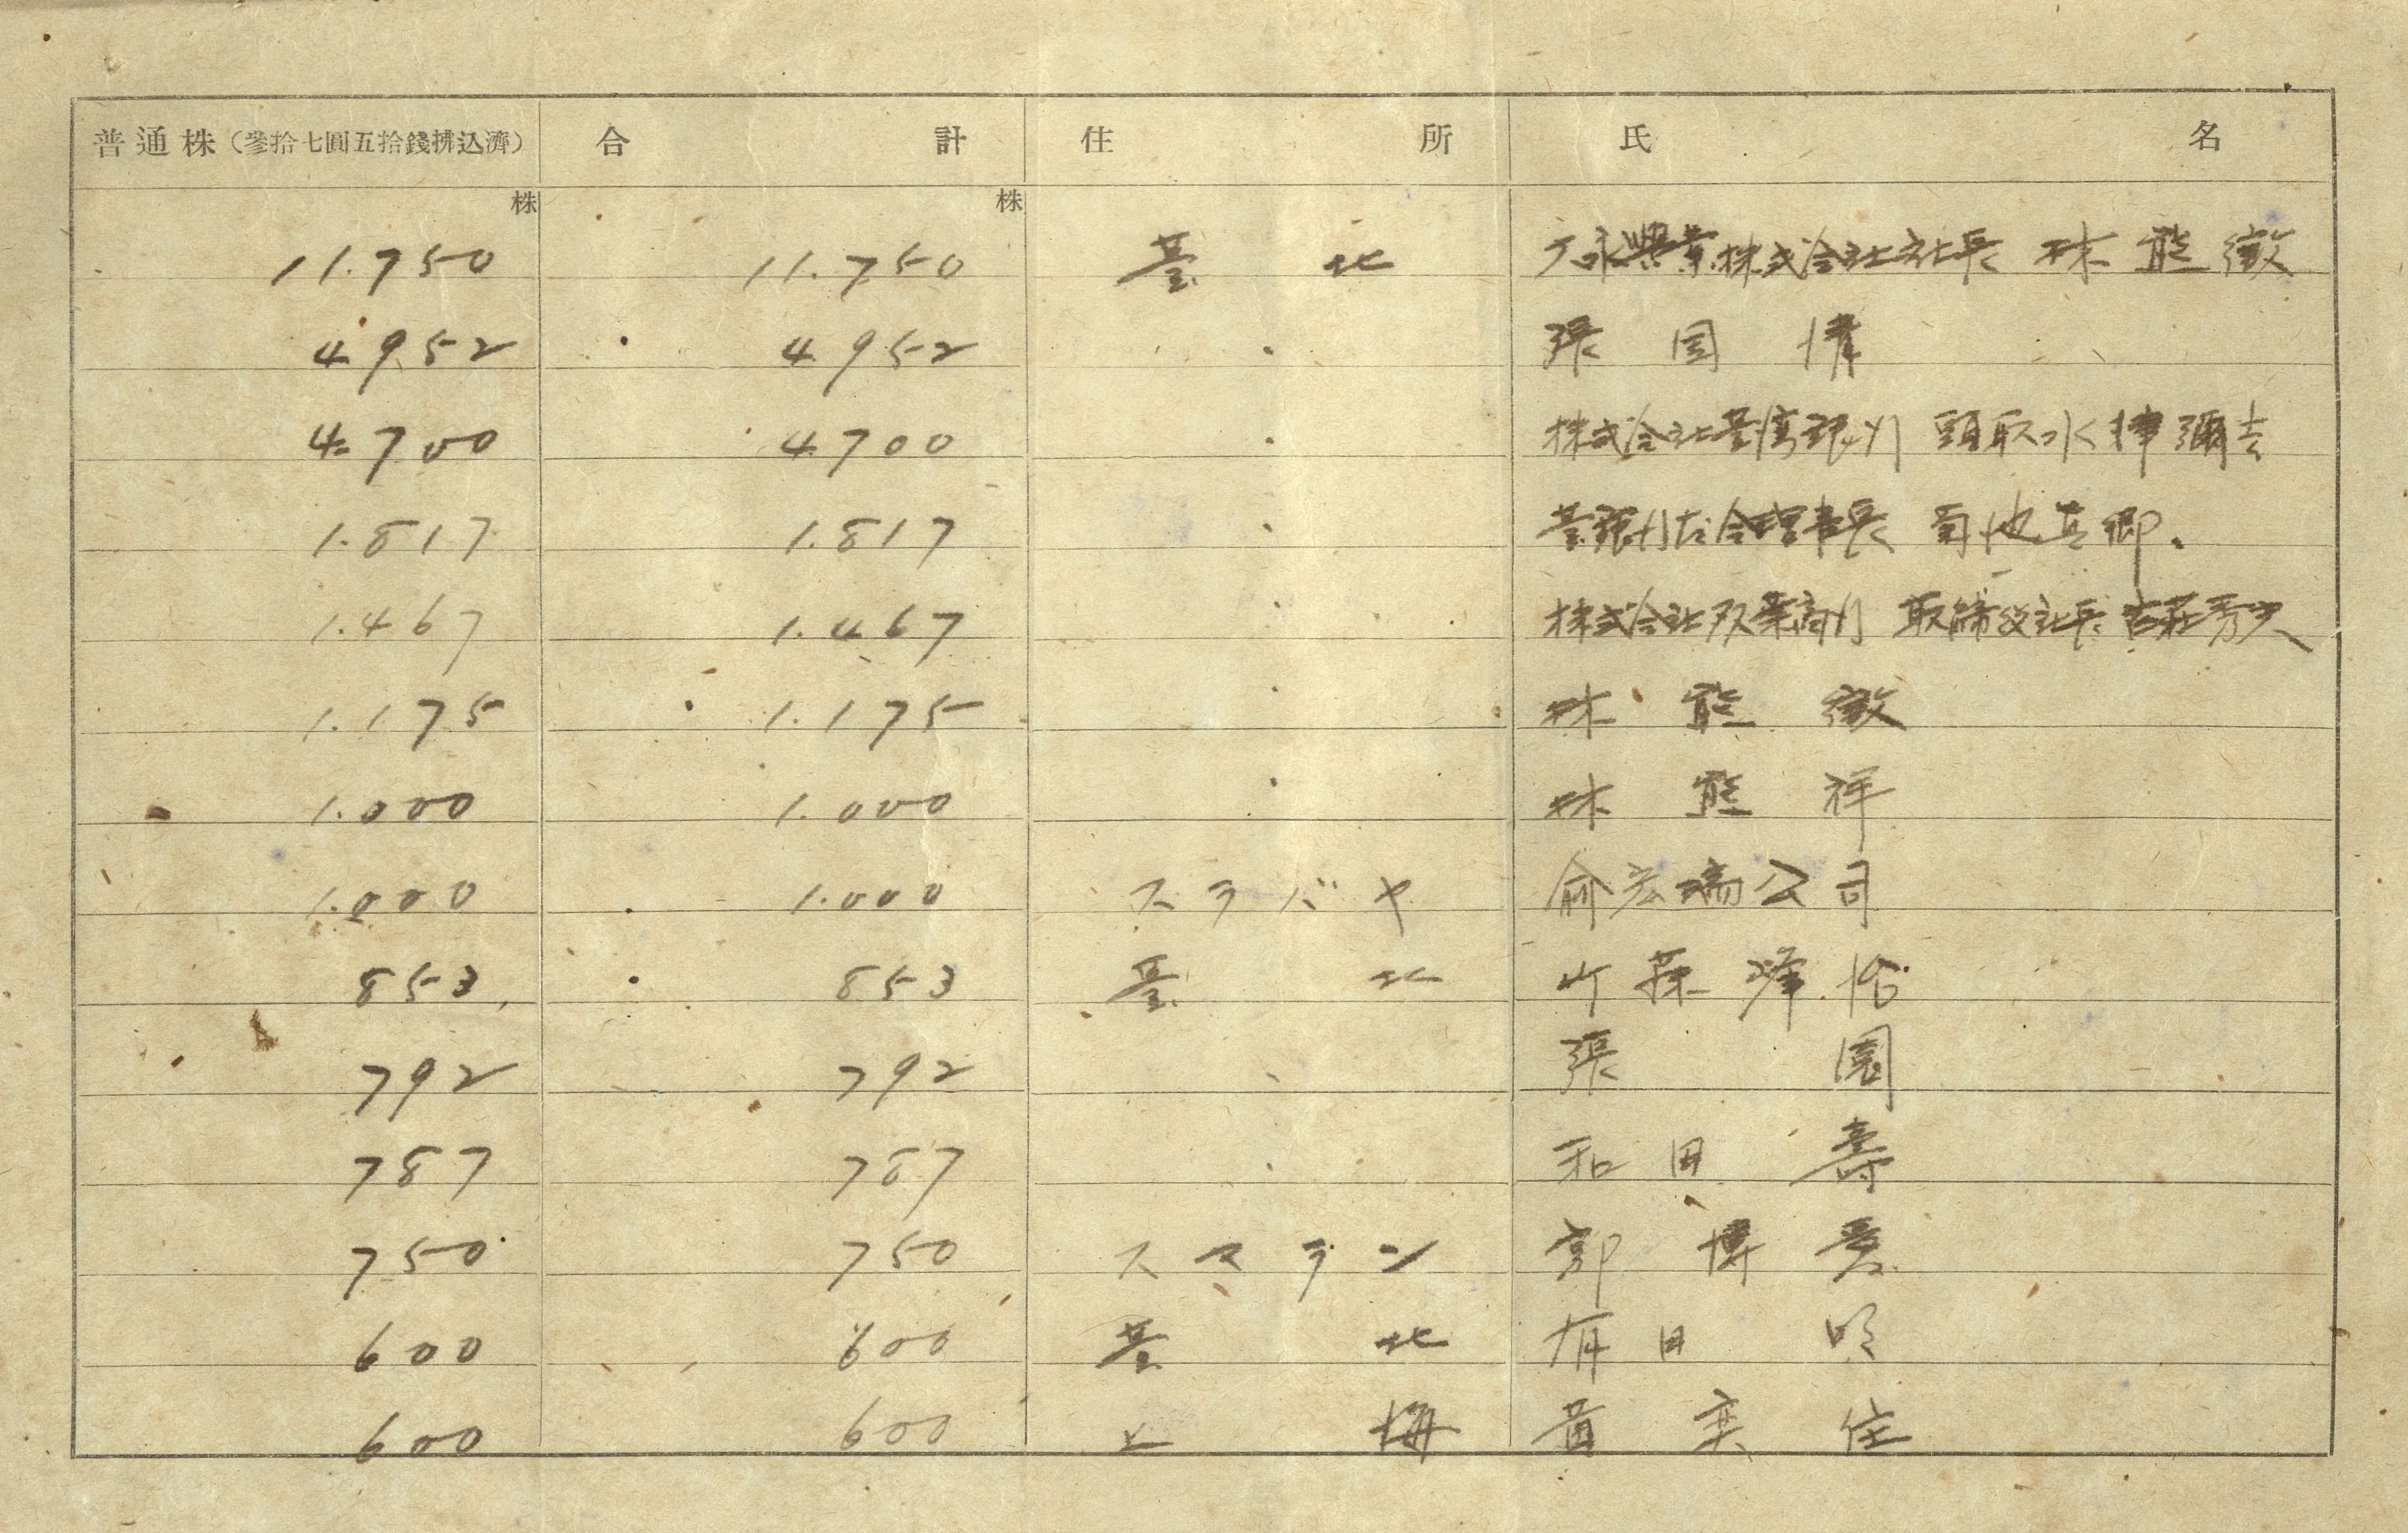 普通株(參拾七圓五拾錢拂込濟) 合計 住所 氏名
株 株
11.750 11.750 臺北 大永興業株式会社社長 林熊徴
4952 4952 〃 張園
4.700 4700 〃 株式会社臺湾銀行 頭取水津彌吉
1.817 1.817 〃 臺銀行友会理事長 菊池直郷
1.467 1.467 〃 株式会社双葉商行 取締役社長 古荘秀夫
1.175 1.175 〃 林熊徴
1.000 1.000 〃 林熊祥
1.000 1.000 スラバヤ 俞宏瑞公司
853 853 臺北 峰
792 792 〃 張園
787 787 〃 和田壽
750 750 スマラン 郭博
600 600 臺北 有田明
600 600 上海 黄奕住